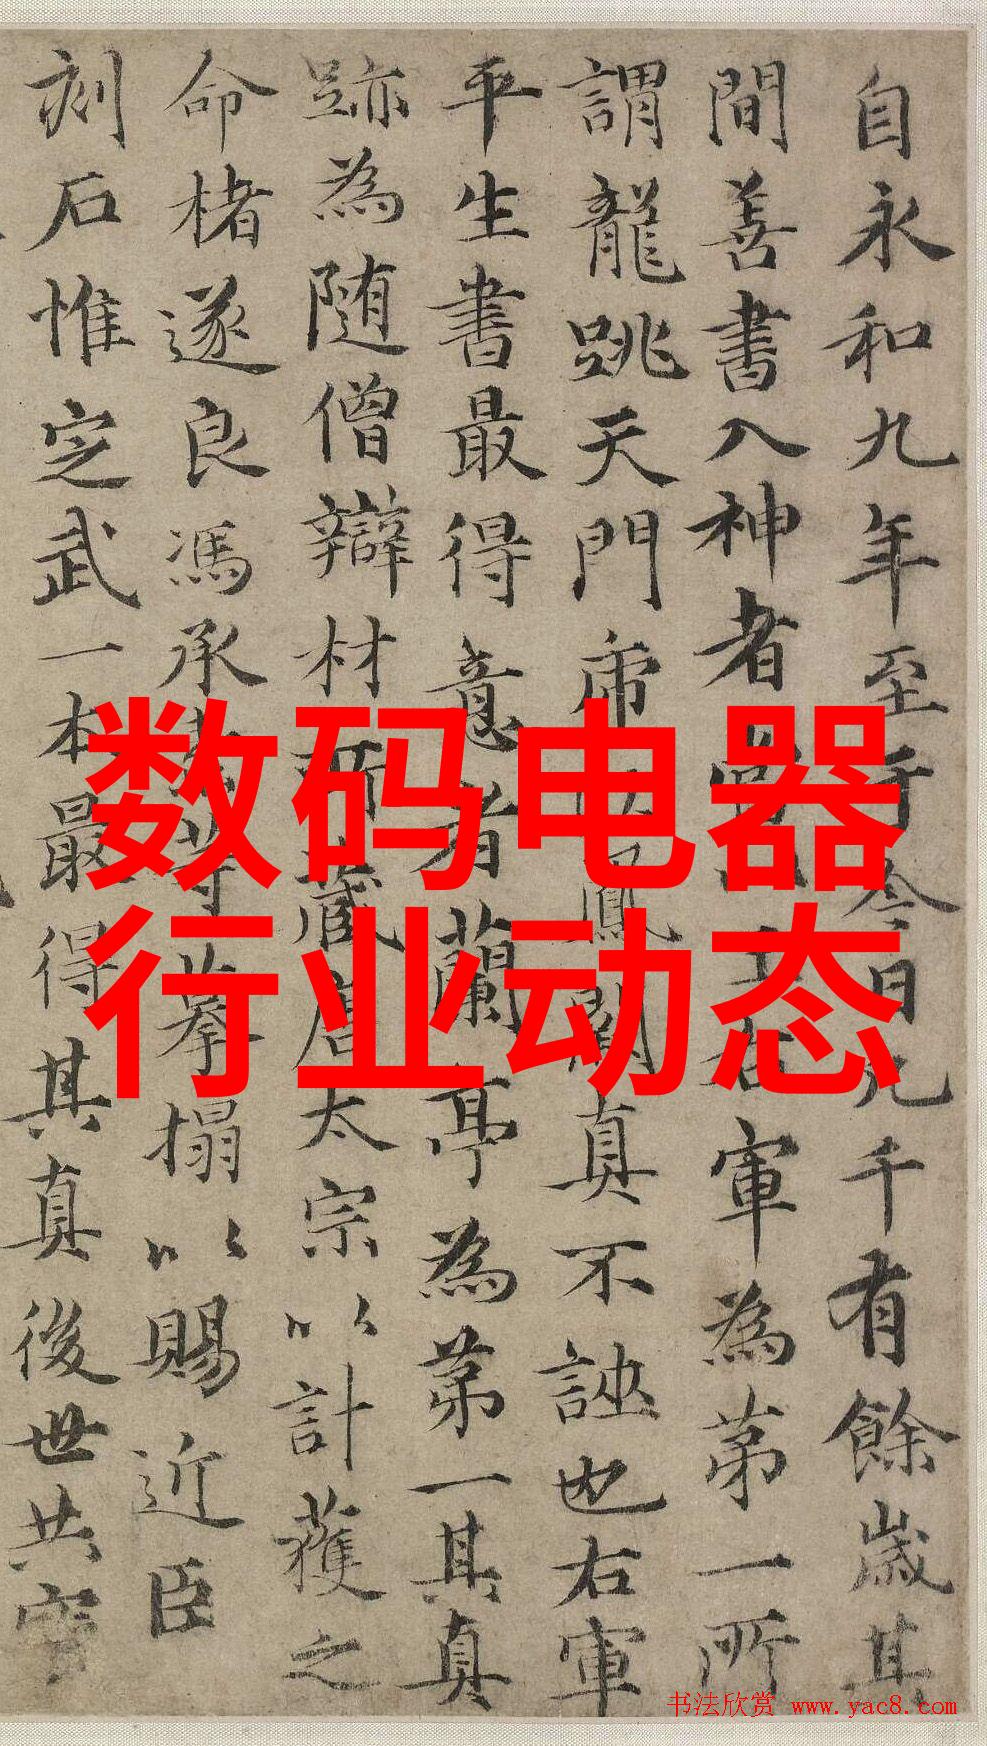 自永和九年至于今日凡千有餘歲其
間善書入神者當以王右軍為第一所
謂龍跳天門虎卧鳳閣真不誣也右軍
平生書最得意者蘭亭為第一其真
跡為随僧辯材所藏唐太宗以計獲之
命楮遂良馮承素等摹搨以賜近臣
刻石惟定武一本最得其真後世共寳
数码电器
行业动态
书法欣赏 www.yac8.com